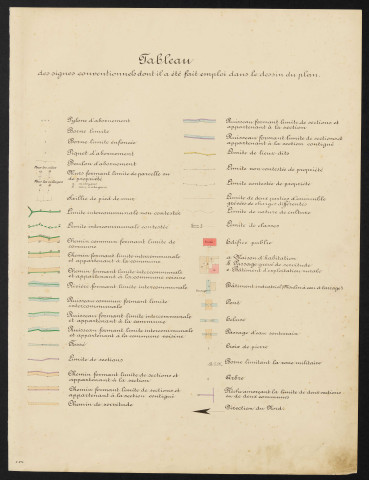 Tableau
des signes conventionnels dont il a été fait emploi dans le dessin du plan.
Pylon d'abornement
Borne limite
Borne limite enfoncée
Piquet d'abornement
Boulon d'abornement
Murs formant limite de parcelle ou
de propriété
Saillie de pied de mur
Limite intercommunale non contestée
Limite intercommunale contestée
Chemin commun formant limite de
commune
Chemin formant limite intercommunale
et appartenant à la commune
Chemin formant limite intercommunale
et appartenant à la commune voisine
Rivière formant limite intercommunale
Ruisseau commun formant limite
intercommunale
Ruisseau formant limite intercommunale
et appartenant à la commune
Ruisseau formant limite intercommunale
et appartenant à la commune voisine
Fossé
Limite de sections
Chemin formant limite de sections et
appartenant à la section
Chemin formant limite de sections et
appartenant à la section contiguë
Chemin de servitude
Ruisseau formant limite de sections et
appartenant à la section
Ruisseau formant limite de sections et
appartenant à la section contiguë
Limite de lieux dits
Limite non contestée de propriété
Limite contestée de propriété
Limite de deux parties d'immeuble
grevées de charges différentes
Limite de nature de culture
Limite de classes
Edifice public
a Maison d'habitation
b Passage grevé de servitude
c Bâtiment d'exploitation rurale
Bâtiment industriel
Pont
Ecluse
Passage d'eau souterrain
Croix de pierre
Borne limitant la zone militaire
Arbre
Flèche annonçant la limite de deux sections
ou de deux communes
Direction du Nord